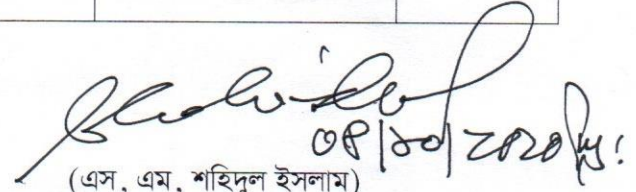 ০৪/১০/২০২০খ্রি:
(এস, এম, শহিদুল ইসলাম)